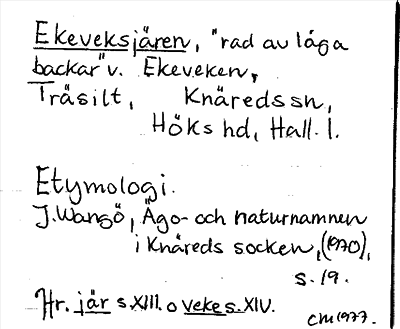 Ekeveksjären, "rad av låga
backar" v. Ekeveken,
Träsilt, Knäredssn,
Höks hd, Hall. l.
Etymologi.
J. Wangö, Ägo- och naturnamnen
i Knäreds socken, (1970),
s. 19.
Hr. jär s. XIII. o veke s. XIV.
CM 1977.